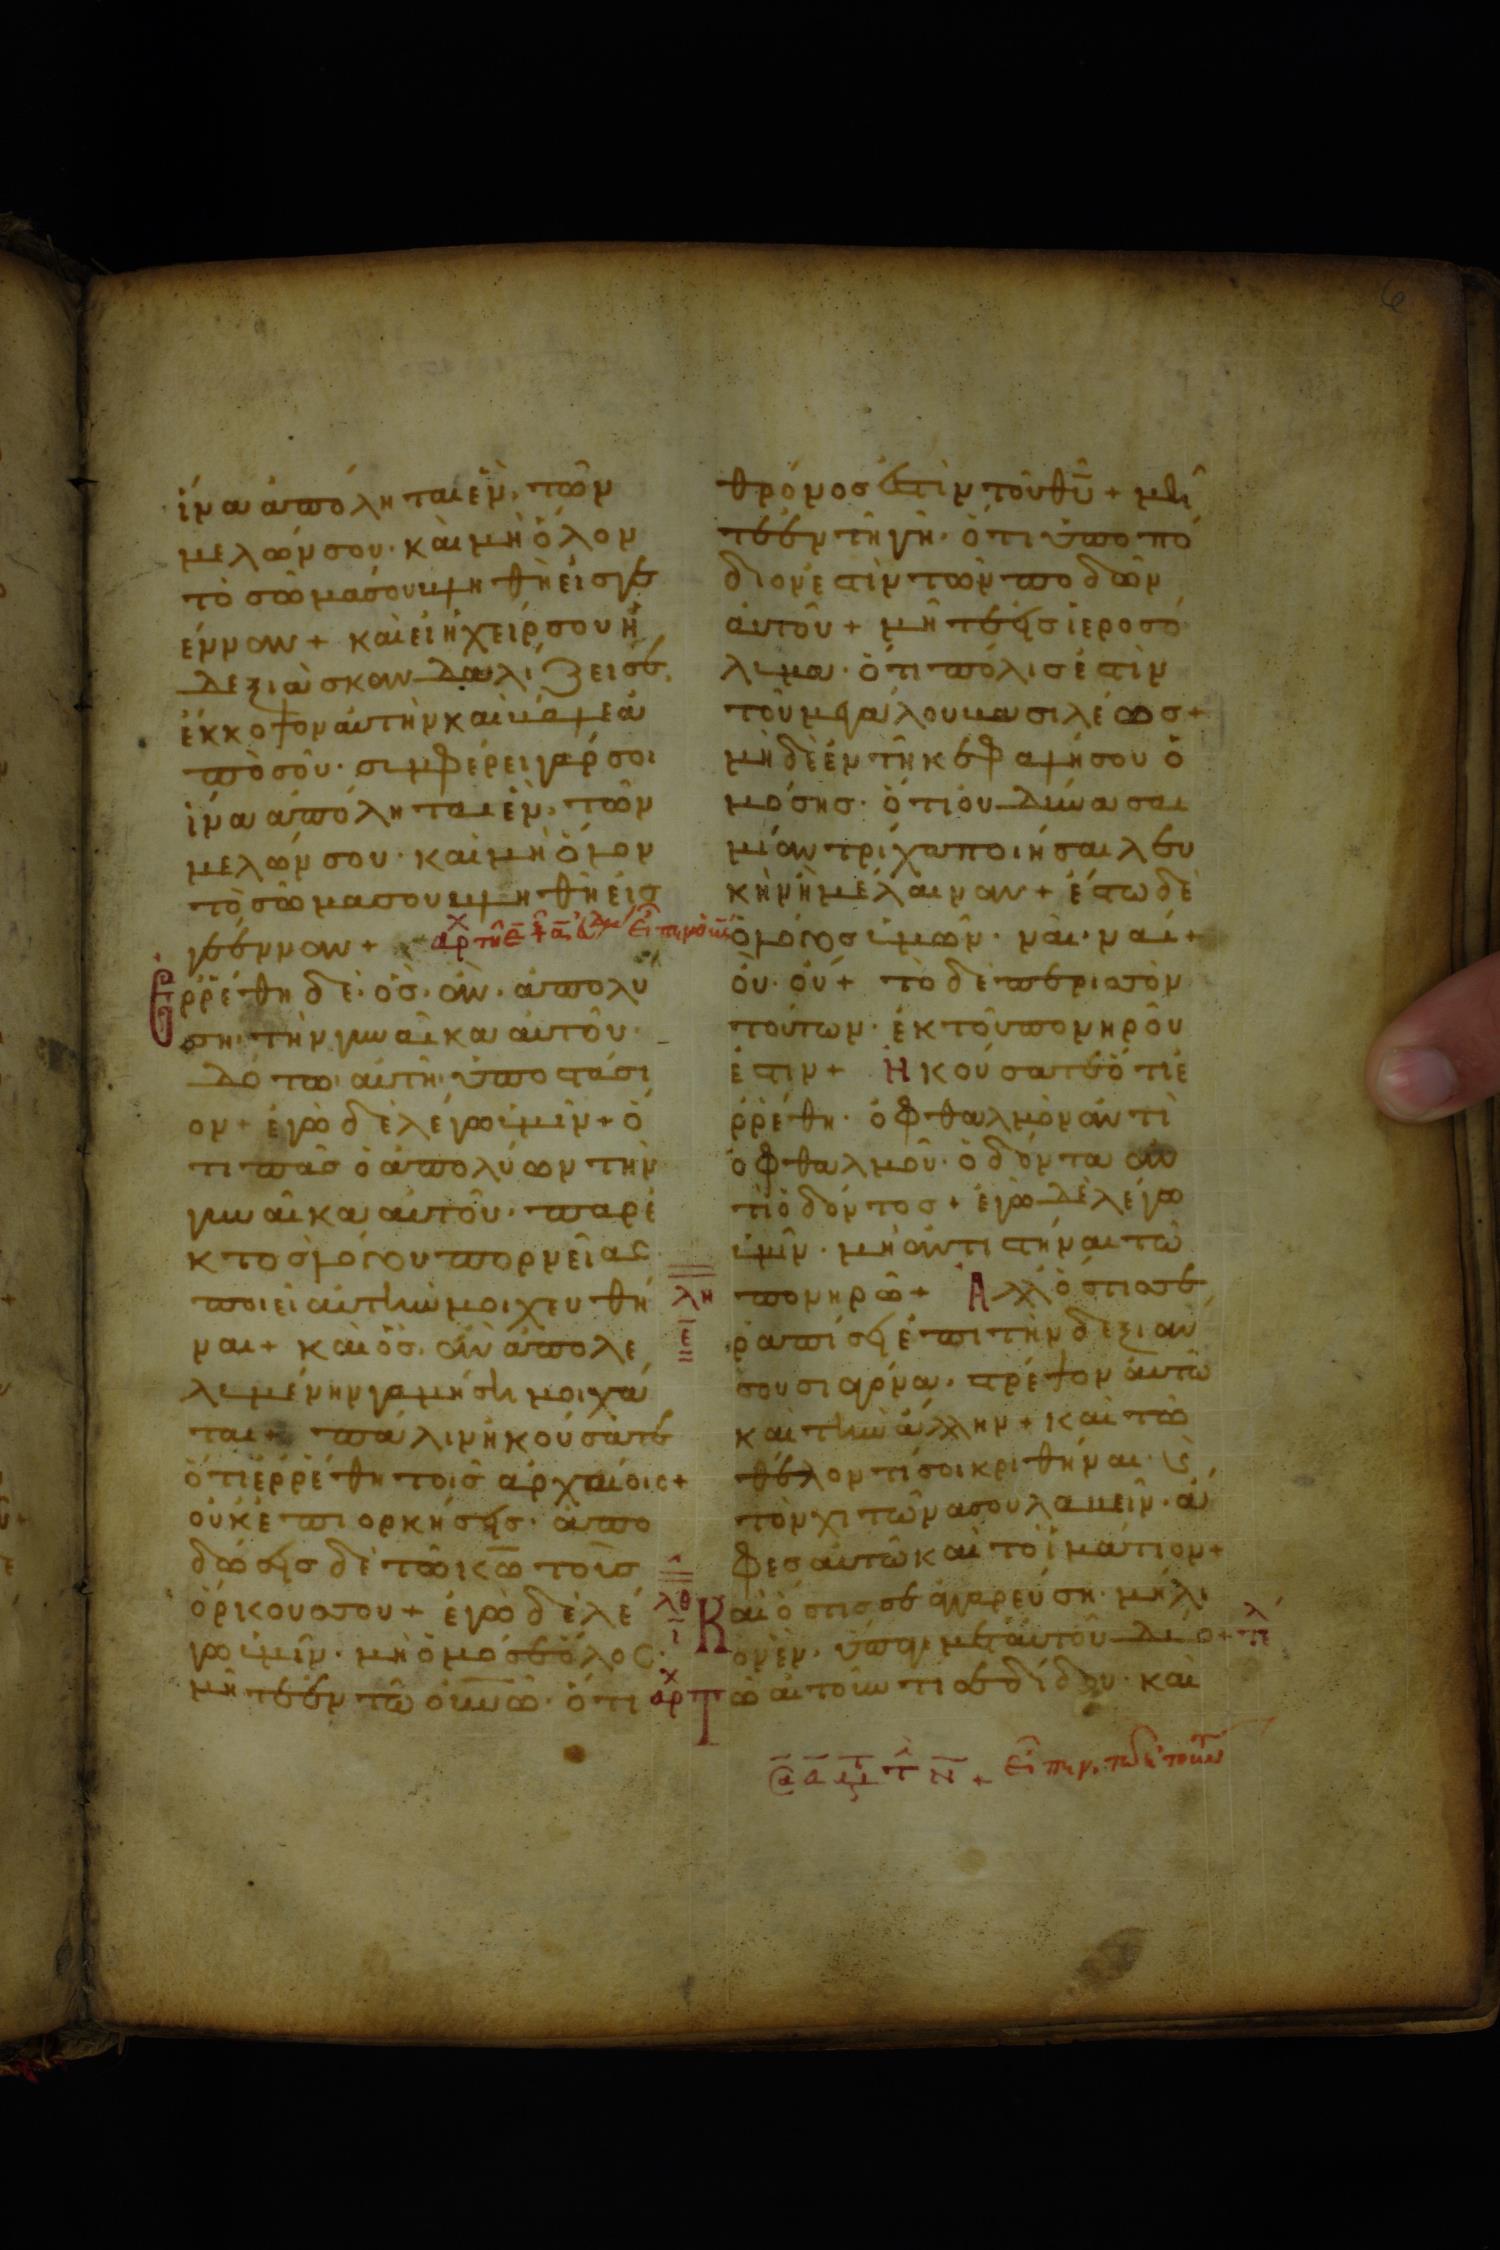 ἵνα ἀπόληται ἓν, τῶν
μελῶν σου· καὶ μὴ ὅλον
τὸ σῶμα σου βληθῆ εἰς γε
έννAν + καὶ εἰ ἡ χείρ σου ἡ
δεξιὰ σκανδαλίζει σε,
ἔκκοψον αὐτὴν καὶ βάλε ἀ
πὸ σοῦ· συμφέρει γάρ σοι
ἵνα ἀπόληται ἓν, τῶν
μελῶν σου· καὶ μὴ ὅλον
τὸ σῶμα σου βληθῆ εἰς
γέενναν +
Ἐρρέθη δὲ· ὃς· ἂν· ἀπολύ
ση· τὴν γυναῖκα αὐτοῦ·
δότω· αὐτῆ· ὑποστάσι
ον + ἐγὼ δὲ λέγω ὑμῖν + ὅ
τι πᾶς ὁ ἀπολύων τὴν
γυναῖκα αὐτοῦ· παρὲ
κτὸς λόγου πορνείας
ποιεῖ αὐτὴν μοιχευθῆ
ναι + καὶ ὃς· ἂν ἀπολε
λυμένην γαμήση μοιχᾶ
ται + πάλιν ἠκούσατε
ὅτι ἐρρέθη τοῖς ἀρχαίοις +
οὐκ ἐπιορκήσεις· ἀπο
δώσεις δὲ τῶ κ̅ω̅ τοὺς
ὅρκους σου + ἐγὼ δὲ λέ
γω ὑμῖν· μὴ ὁμόσαι ὅλος·
μήτε ἐν τῶ ο̅υ̅ν̅ω̅· ὅτι
θρόνος ἐστὶν τοῦ θ̅υ̅ + μή
τε ἐν τῆ γῆ· ὅτι ὑποπό
διον ἐστὶν τῶν ποδῶν
αὐτοῦ + μήτε εἰς ἱεροσό
λυμα· ὅτι πόλις ἐστὶν
τοῦ μεγάλου βασιλέως +
μὴδὲ ἐν τῆ κεφαλῆ σου ὀ
μόσης· ὅτι οὐ δύνασαι
μίαν τρίχα ποιῆσαι λευ
κὴν ἢ μέλαιναν + ἔστω δὲ
ὁ λόγος ὑμῶν· ναὶ· ναὶ +
οὔ· οὔ + τὸ δὲ περισσὸν
τούτων· ἐκ τοῦ πονηροῦ
ἐστιν + Ἠκούσατε ὅτι ἐ
ρρέθη· ὀφθαλμὸν ἀντὶ
ὀφθαλμοῦ· ὀδόντα ἀν
τὶ ὀδόντος + ἐγὼ δὲ λέγω
ὑμῖν· μὴ ἀντιστῆναι τῶ
πονηρῶ + Ἀλλ' ὅστις σε
ῥαπίσει ἐπὶ τὴν δεξιὰν
σου σιαγόνα· στρέψον αὐτῶ
καὶ τὴν ἄλλην + καὶ τῶ
θέλοντί σοι κριθῆναι· κ̀
τὸν χιτῶνα σου λαβεῖν· ἄ
φες αὐτῶ καὶ τὸ ἱμάτιον +
Καὶ ὅστις σε ἀγγαρεύση· μήλι
ον ἓν· ὕπαγε μετ' αὐτοῦ δύο +
Τῶ αἰτοῦντι σε δίδου· καὶ
λη
ε
λθ
ι
αρχ
6